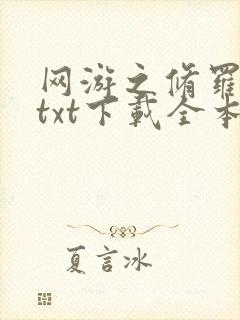 网游之脩羅
txt下載全本
夏言冰